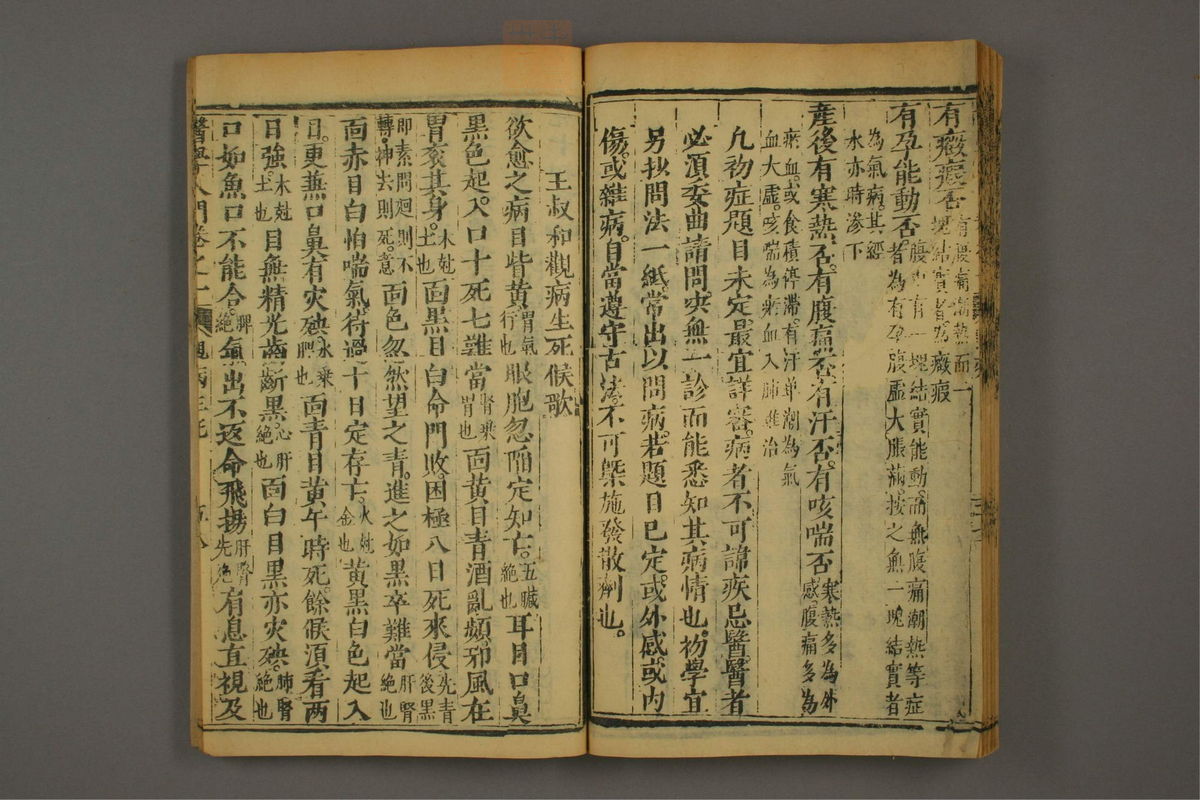 有癥瘕否有腹痛潮熱而一塊結實者為癥瘕
有孕能動否腹中有一塊結實能動而無腹痛潮熱等症者為有孕腹虛大脹滿按之無一塊結實者
為氣病其經水亦時滲下
產後有寒熱否有腹痛否有汗否有咳喘否寒熱多為外感腹痛多為
瘀血或食積停滯有汗單潮為氣血大虛咳喘為瘀血入肺難治
凡初症題目未定最宜詳審病者不可諱疾忌醫醫者
必須委曲請問決無一診而能悉知其病情也初學宜
另抄問法一紙常出以問病若題目已定或外感或內
傷或雜病自當遵守古法不可槩施發散劑也
王叔和觀病生死候歌
欲愈之病目眥黃胃氣行也眼胞忽陷定知亡五臟絕也耳目口鼻
黑色起入口十死七難當腎乘胃也面黃目青酒亂頻邪風在
胃衮其身木尅土也面黑目白命門敗困極八日死來侵先青後黑
即素問廻則不轉神去則死意面色忽然望之青進之如黑卒難當肝腎絕也
面赤目白怕喘氣待過十日定存亡火尅金也黃黑白色起入
目更蒸口鼻有灾殃水乘脾也面青目黃午時死餘候須看兩
日強木尅土也目無精光齒齗黑心肝絕也面白目黑亦灾殃肺腎絕也
口如魚口不能合脾絕氣出不返命飛揚肝腎先絕有息直視及
醫學入門卷之一 觀病生死